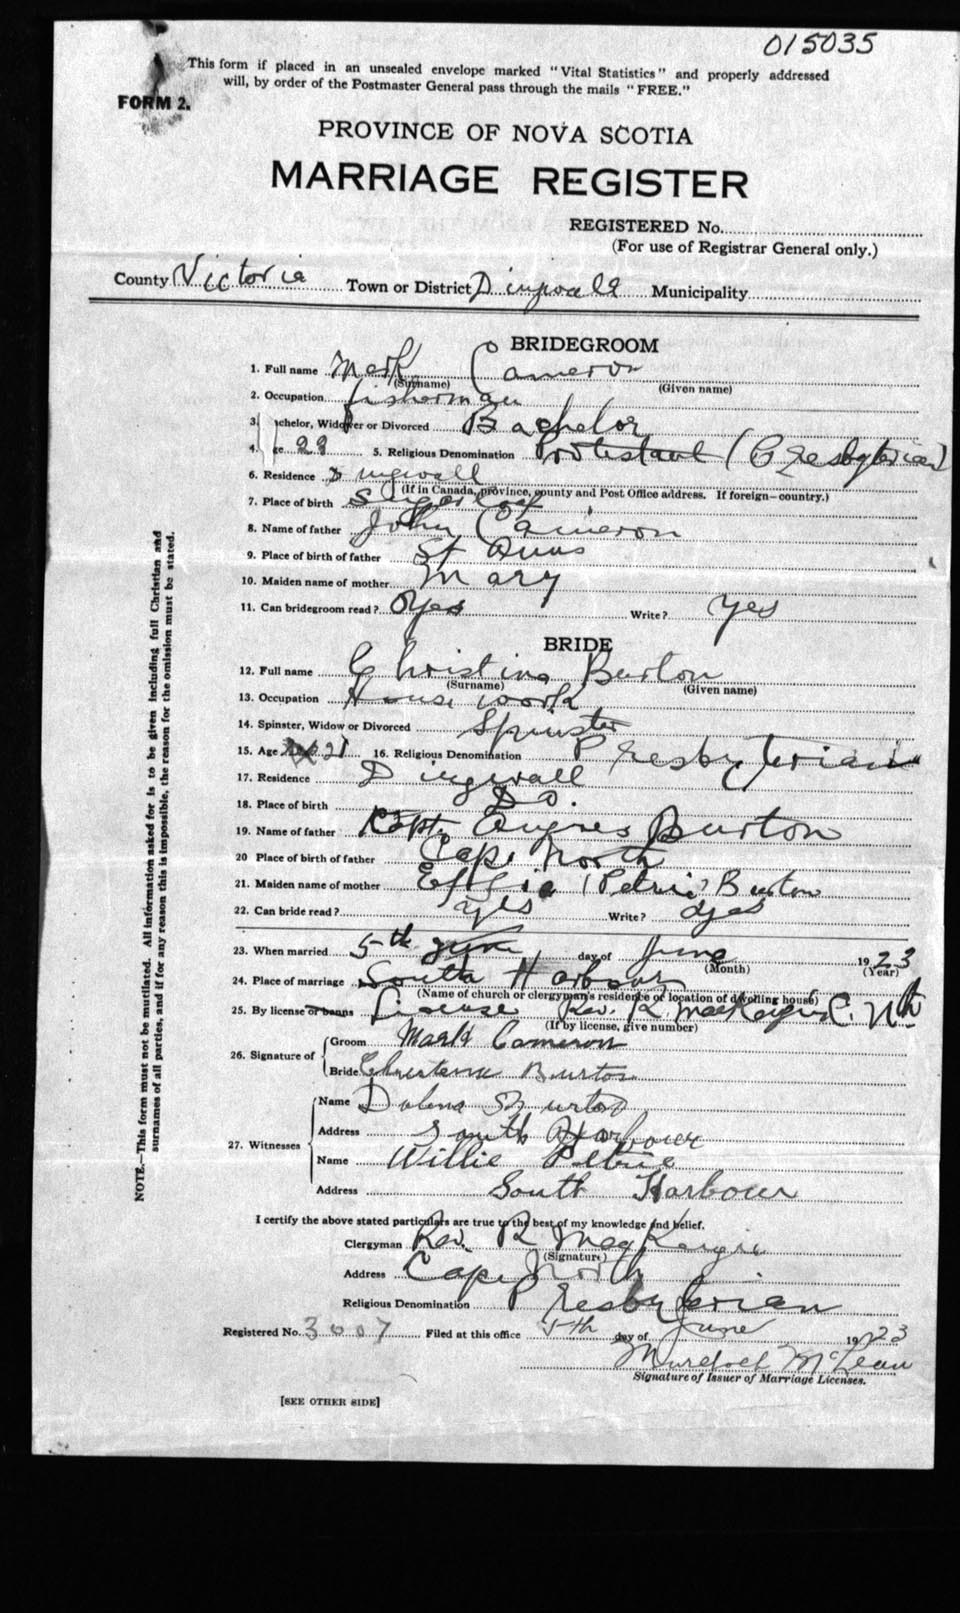 015035
This form if placed in an unsealed envelope marked "Vital Statistics" and properly addressed
will, by order of the Postmaster General pass through the mails "FREE."
FORM 2.
PROVINCE OF NOVA SCOTIA
MARRIAGE REGISTER
REGISTERED No.
(For use of Registrar General only.)
County Victoria Town or District Dingwall Municipality
BRIDEGROOM
1. Full name Mark Cameron
(Surname) (Given name)
2. Occupation fisherman
3. Bachelor, Widower or Divorced Bachelor
4. Age 29 5. Religious Denomination Protestant (Presbyterian)
6. Residence Dingwall
(If in Canada, province, county and Post Office address. If foreign—country.)
7. Place of birth Sugar Loaf
8. Name of father John Cameron
9. Place of birth of father St Anns
10. Maiden name of mother Mary
11. Can bridegroom read? yes Write? yes
BRIDE
12. Full name Christina Burton
(Surname) (Given name)
13. Occupation House work
14. Spinster, Widow or Divorced Spinster
15. Age 21 16. Religious Denomination Presbyterian
17. Residence Dingwall
18. Place of birth Do.
19. Name of father Capt. Angus Burton
20 Place of birth of father Cape North
21. Maiden name of mother Effie (Petrie) Burton
22. Can bride read? yes Write? yes
23. When married 5th June day of June 1923
(Month) (Year)
24. Place of marriage South Harbour
(Name of church or clergyman's residence or location of dwelling house)
25. By license or banns License Rev. R. C. Nth
(If by license, give number)
26. Signature of Groom Mark Cameron
Bride Christena Burton
27. Witnesses
Name Burton
Address South Harbour
Name Willie Petrie
Address South Harbour
I certify the above stated particulars are true to the best of my knowledge and belief.
Clergyman Rev. R
(Signature)
Address Cape North
Religious Denomination Presbyterian
Registered No. 3007 Filed at this office 5th day of June 1923
Murdoch McLean
Signature of Issuer of Marriage Licenses.
[SEE OTHER SIDE]
NOTE.—This form must not be mutilated. All information asked for is to be given including full Christian and
surnames of all parties, and if for any reason this is impossible, the reason for the omission must be stated.